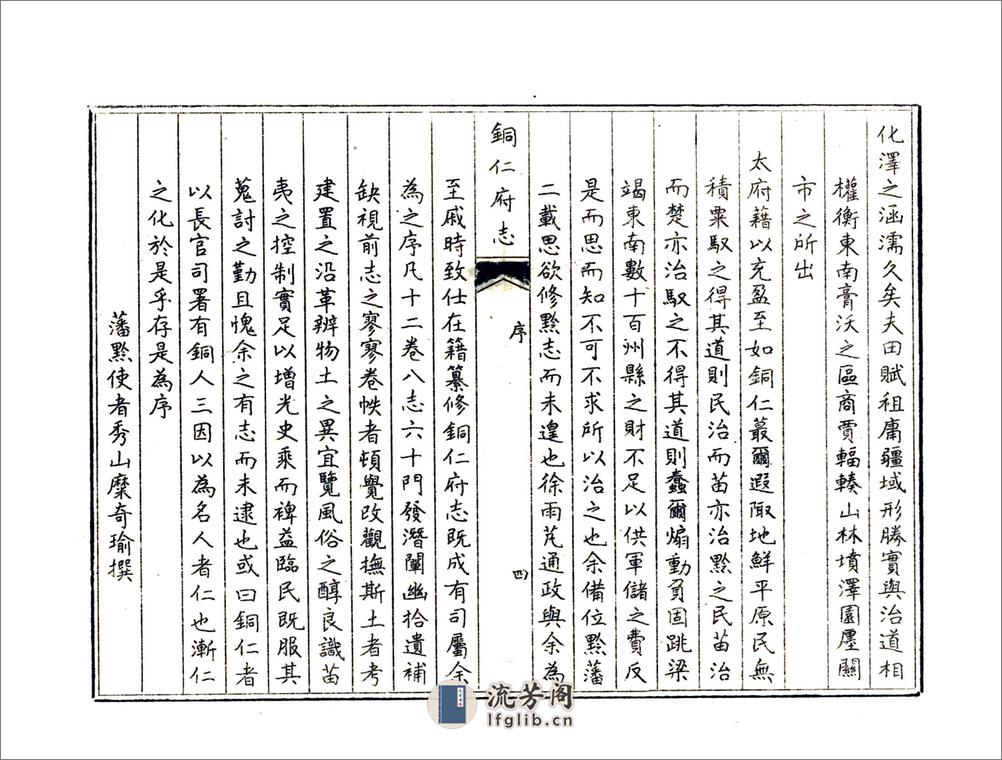 化澤之涵濡久矣夫田賦租庸疆域形勝實與治道相
權衡東南膏沃之區商賈輻輳山林墳澤園廛關
市之所出
太府藉以充盈至如銅仁蕞爾遐陬地鮮平原民無
積粟馭之得其道則民治而苗亦治黔之民苗治
而楚亦治馭之不得其道則蠢爾煽動負固跳梁
竭東南數十百州縣之財不足以供軍儲之費反
是而思而知不可不求所以治之也余備位黔藩
二載思欲修黔志而未遑也徐雨芃通政與余為
銅仁府志
序
四
至戚時致仕在籍纂修銅仁府志既成有司屬余
為之序凡十二卷八志六十門發潛闡幽拾遺補
缺視前志之寥寥卷帙者頓覺改觀撫斯土者考
建置之沿革辨物土之異宜覽風俗之醇良識苗
夷之控制實足以增光史乘而裨益臨民既服其
蒐討之勤且愧余之有志而未逮也或曰銅仁者
以長官司署有銅人三因以為名人者仁也漸仁
之化於是乎存是為序
藩黔使者秀山糜奇瑜撰
流芳阁
lfglib.cn